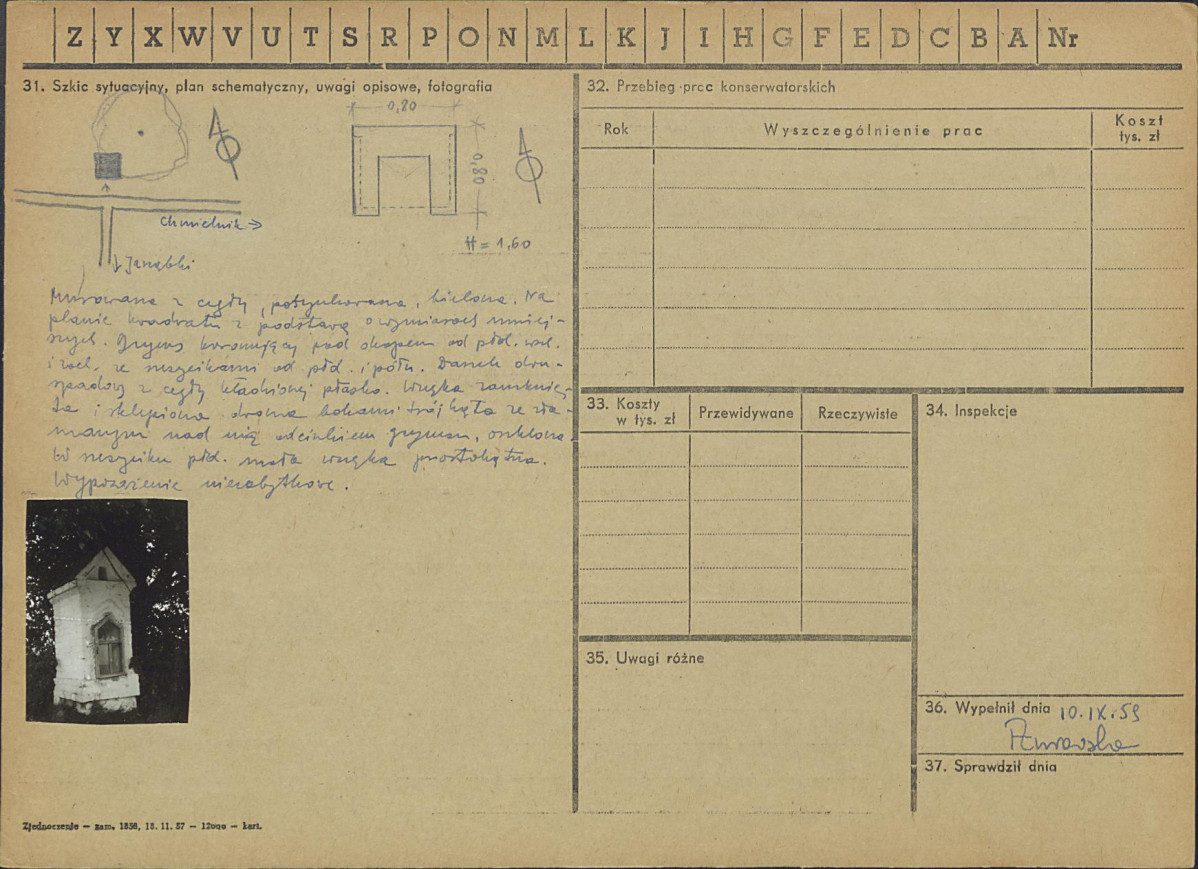 Z Y X W V U T S R P O N M L K J I H G F E D C B A Nr
31. Szkic sytuacyjny, plan schematyczny, uwagi opisowe, fotografia
0,80
0,80
H = 1,60
Chmielnik →
↓ Janąbki
Murowana z cegły, potynkowana, bielona. Na
planie kwadratu z podstawą o wymiarach mniej-
szych. Gzyms koronujący pod okapem od płd. wsch.
i zach. ze naszyjkami od płd. i półn. Daszek dwu-
spadowy z cegły kładzionej płasko. Wnęka zamknię-
ta i sklepiona dwoma bokami trójkąta ze zła-
manym nad nią odcinkiem gzymsu, oszklona.
W płd. mała wnęka prostokątna.
Wyposażenie niezabytkowe.
Zjednoczenie — zam. 1856, 18. 11. 57 — 12000 — kart.
32. Przebieg prac konserwatorskich
Rok
Wyszczególnienie prac
Koszt
tys. zł
33. Koszty
w tys. zł
Przewidywane
Rzeczywiste
34. Inspekcje
35. Uwagi różne
36. Wypełnił dnia 10.IX.59
37. Sprawdził dnia